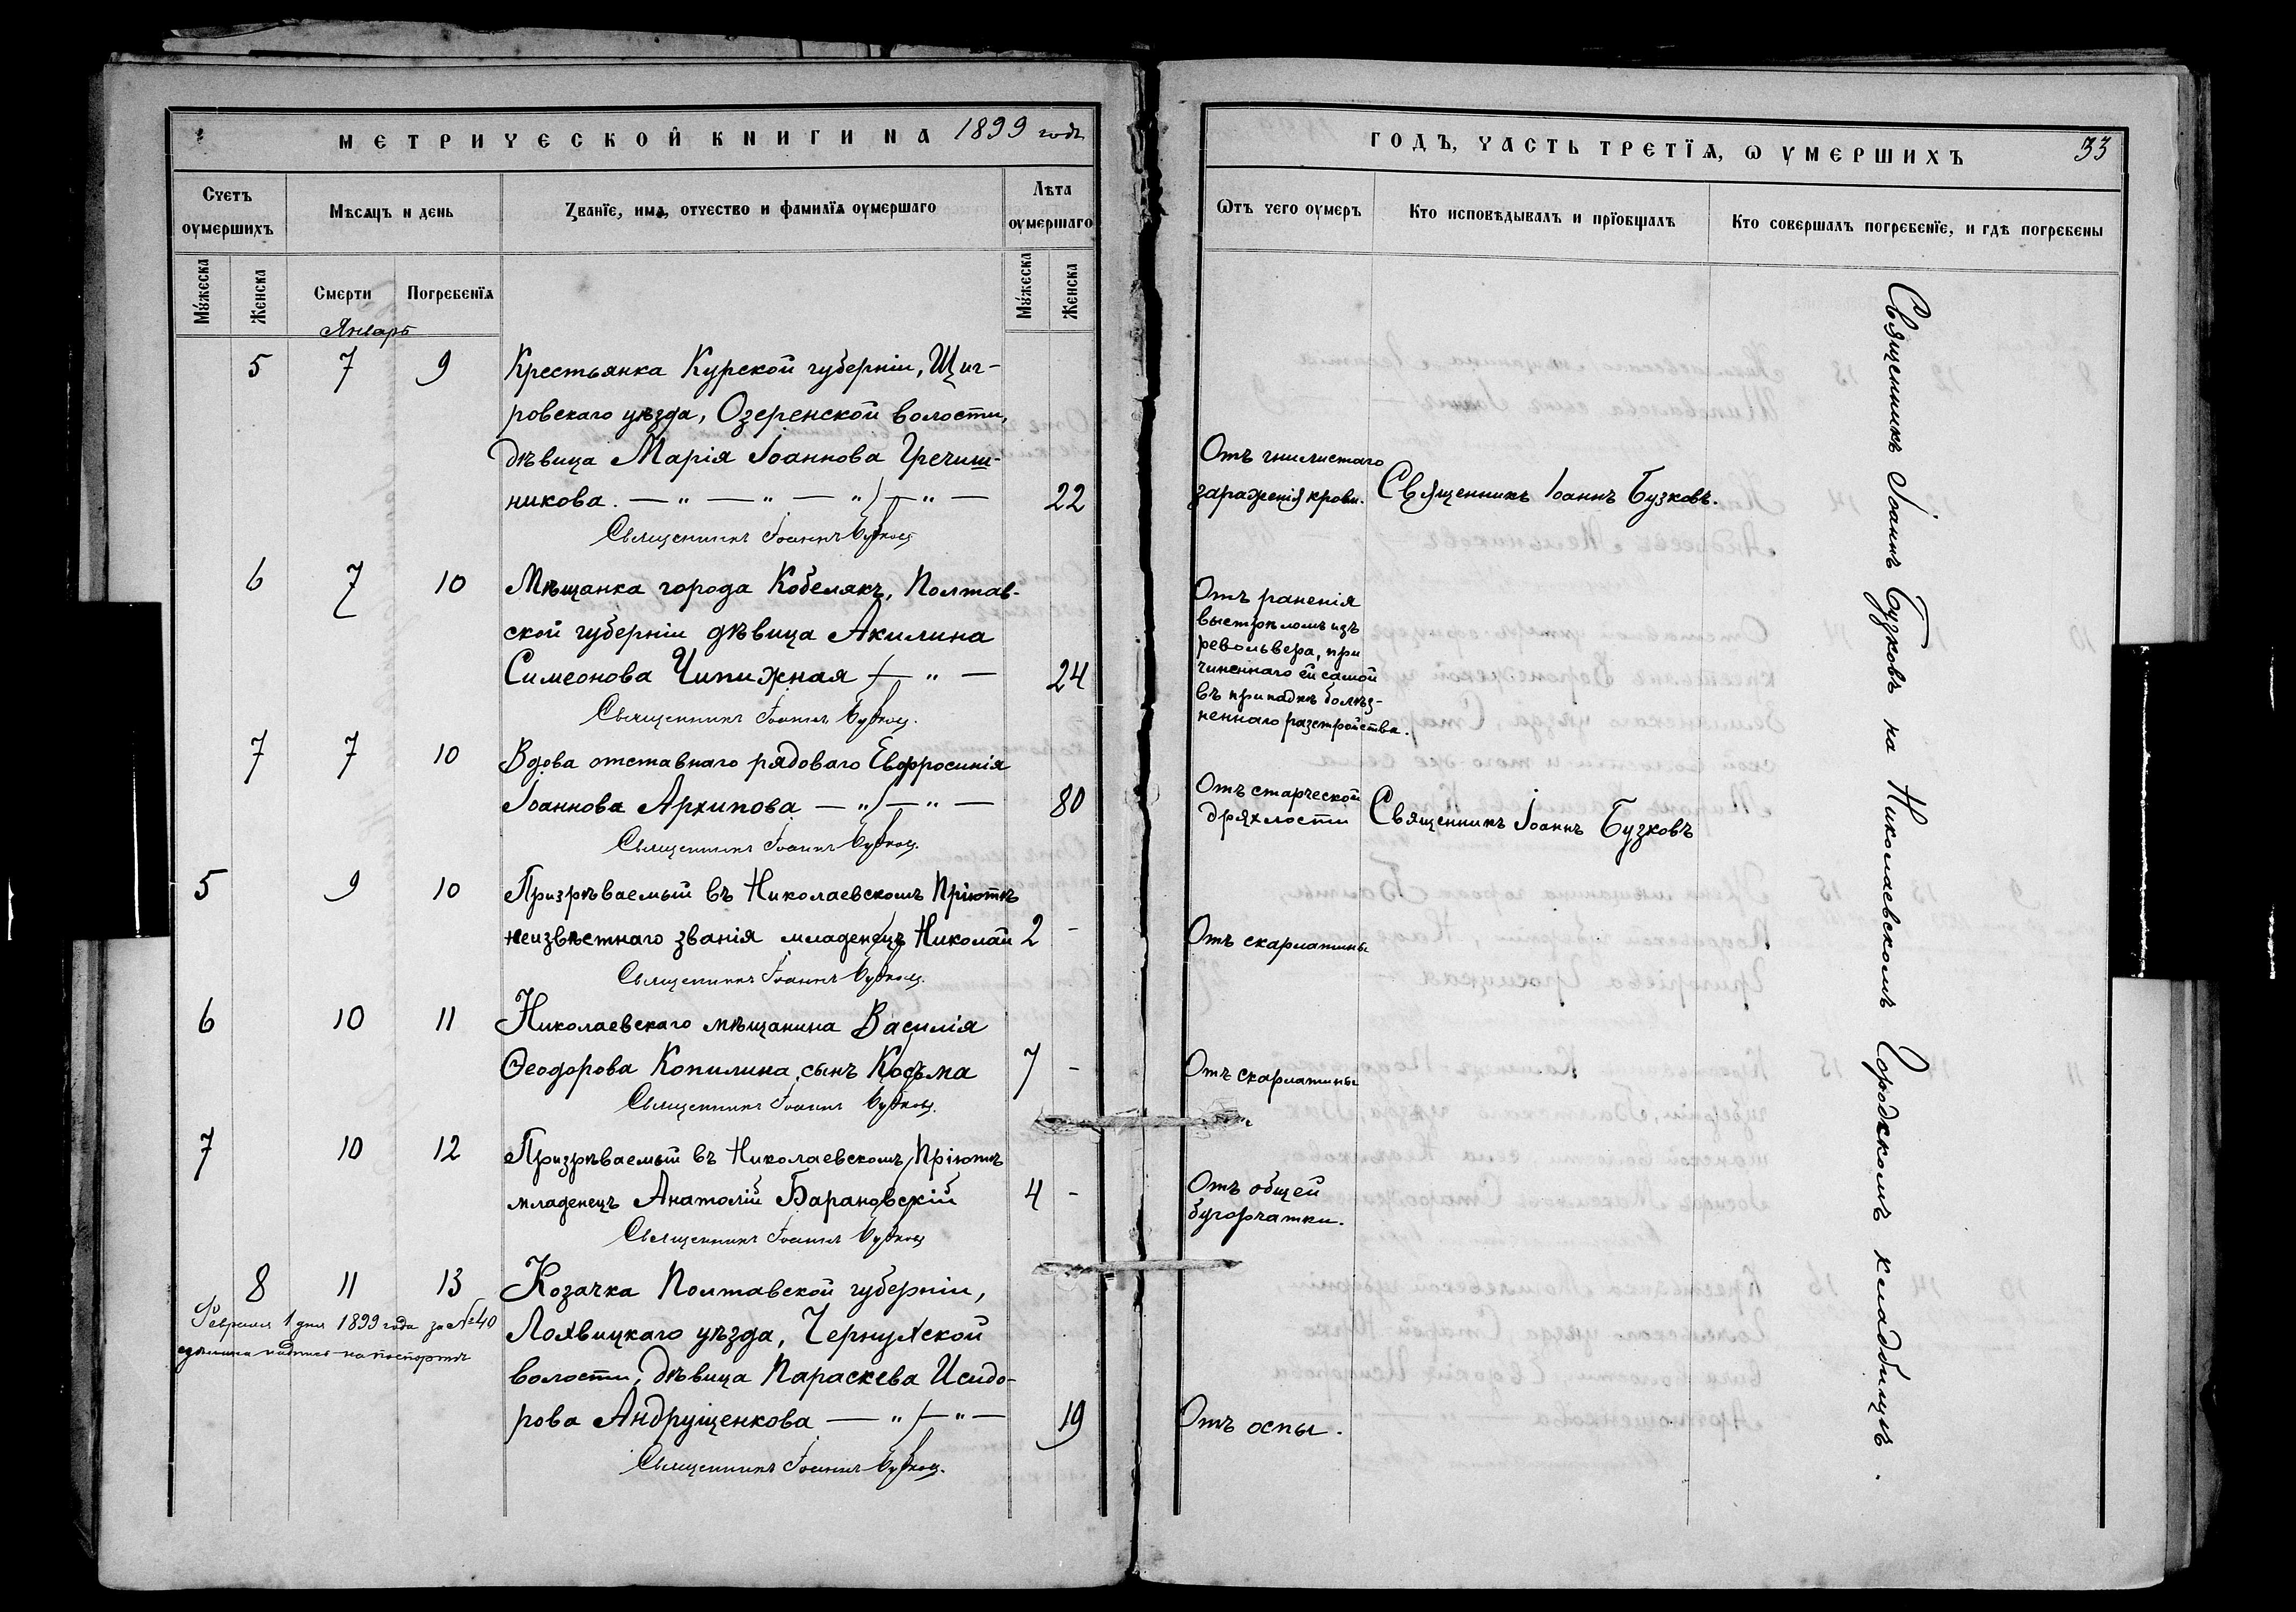 МЕТРИЧЕСКОЙ КНИГИ НА 1899 годъ
Счетъ оумершихъ
Мѣсяцъ и день
Званїе, имя, отчество и фамилїя оумершаго
Лѣта оумершаго
Мꙋжеска
Женска
Смерти
Погребенїя
Мꙋжеска
Женска
Январь
5 7 9 Крестьянка Курской губерніи, Щиг-
ровскаго уѣзда, Озеренской волости,
дѣвица Марія Іоаннова Гречиш-
никова. — " — " — " — " — 22
Священникъ Іоаннъ Бузковъ
6 7 10 Мѣщанка города Кобелякъ, Полтав-
ской губерніи дѣвица Акилина
Симеонова Чипижная — " — 24
Священникъ Іоаннъ Бузковъ.
7 7 10 Вдова отставнаго рядоваго Евфросинія
Іоаннова Архипова — " — " — 80
Священникъ Іоаннъ Бузковъ.
5 9 10 Призрѣваемый въ Николаевскомъ Пріютѣ
неизвѣстнаго званія младенецъ Николай 2 -
Священникъ Іоаннъ Бузковъ.
6 10 11 Николаевскаго мѣщанина Василія
Ѳеодорова Копилина сынъ Косьма 7 -
Священникъ Іоаннъ Бузковъ.
7 10 12 Призрѣваемый въ Николаевскомъ Пріютѣ
младенецъ Анатолій Барановскій 4 -
Священникъ Іоаннъ Бузковъ
8 11 13 Козачка Полтавской губерніи,
Февраля 1 дня 1899 года за №40
сдѣлана надпись на паспортѣ
Лохвицкаго уѣзда, Чернухской
волости, дѣвица Параскева Исидо-
рова Андрущенкова — " — " — 19
Священникъ Іоаннъ Бузковъ.
ГОДЪ, ЧАСТЬ ТРЕТЇЯ, Ѡ УМЕРШИХЪ 33
Ѿтъ чего оумеръ
Кто исповѣдывалъ и прїобщалъ
Кто совершалъ погребенїе, и гдѣ погребены
Отъ гнилистаго
зараженія крови. Священникъ Іоаннъ Бузковъ.
Отъ раненія
выстрѣломъ изъ
револьвера, при
чиненнаго ей самой
въ припадкѣ болѣз-
неннаго разстройства.
Отъ старческой
дряхлости Священникъ Іоаннъ Бузковъ
Отъ скарлатины
Отъ скарлатины
Отъ общей
бугорчатки.
Отъ оспы.
Священникъ Іоаннъ Бузковъ на Николаевскомъ Городскомъ кладбищѣ.